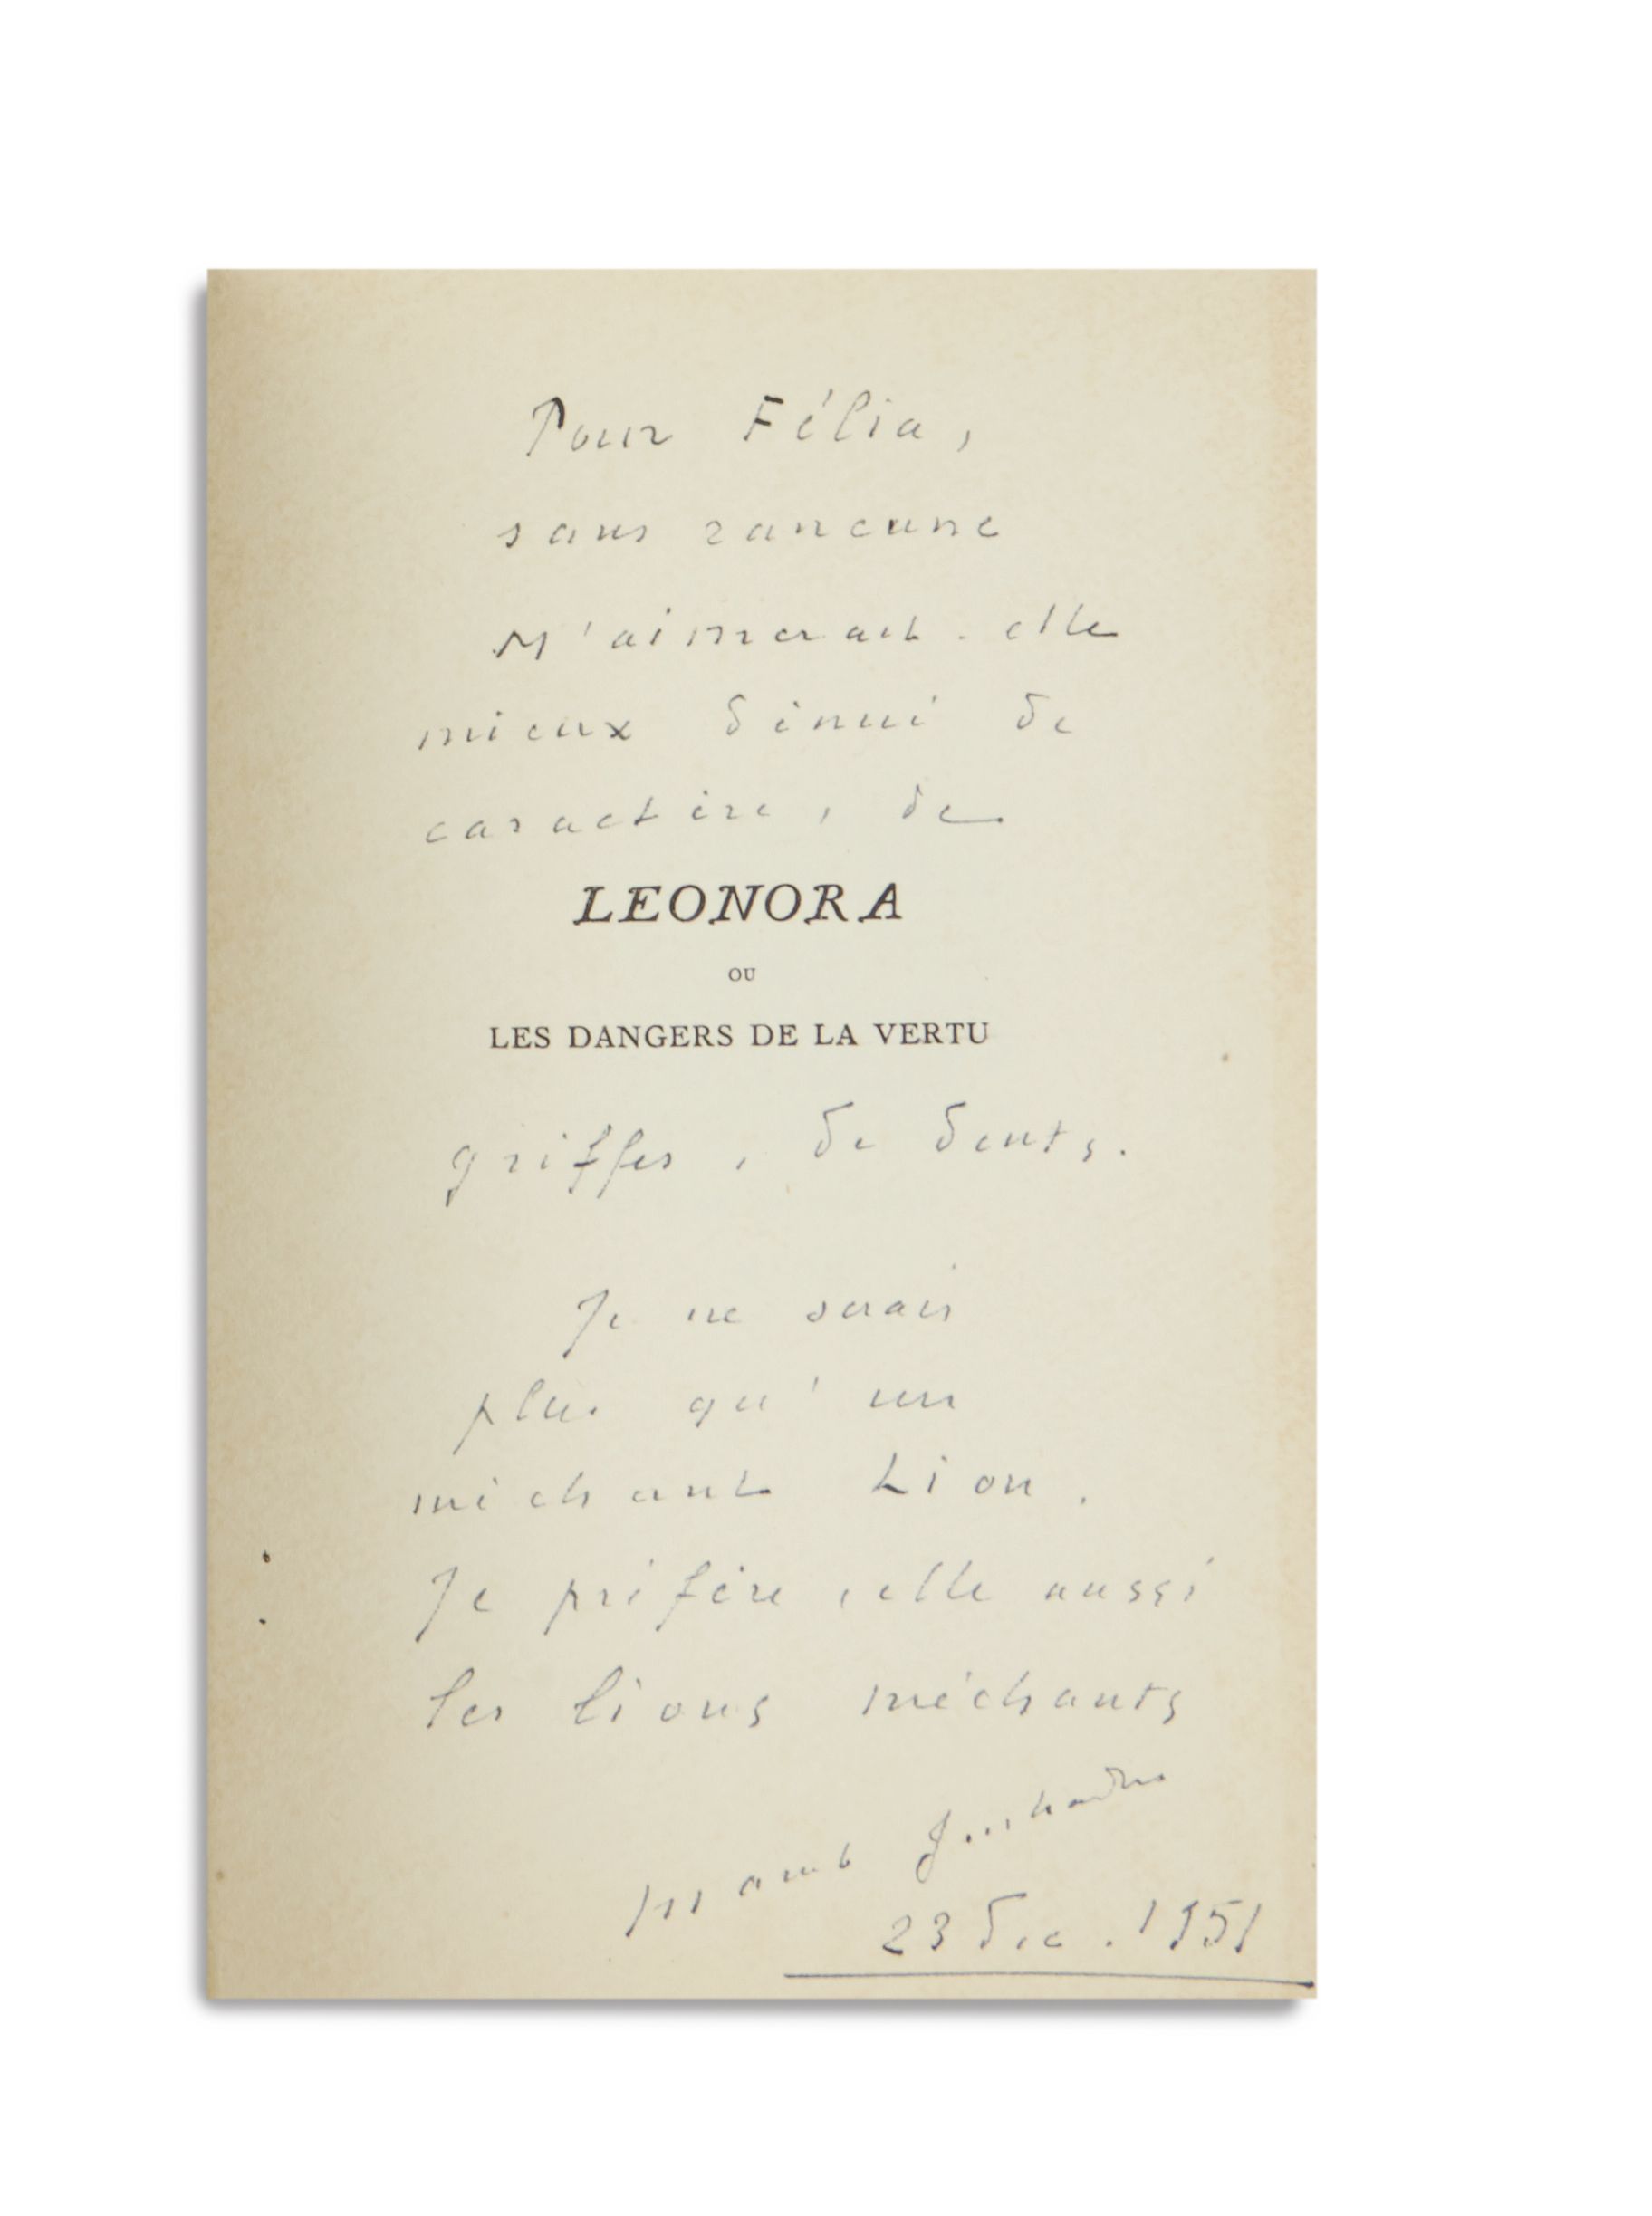 Pour Félia,
sans rancune
M'aimerait-elle
mieux dénué de
caractère, de
LEONORA
OU
LES DANGERS DE LA VERTU
griffes, de dents.
Je ne serais
plus qu'un
méchant Lion.
Je préfère, elle aussi
les lions méchants
Marcel Jouhandeau
23 Déc. 1951